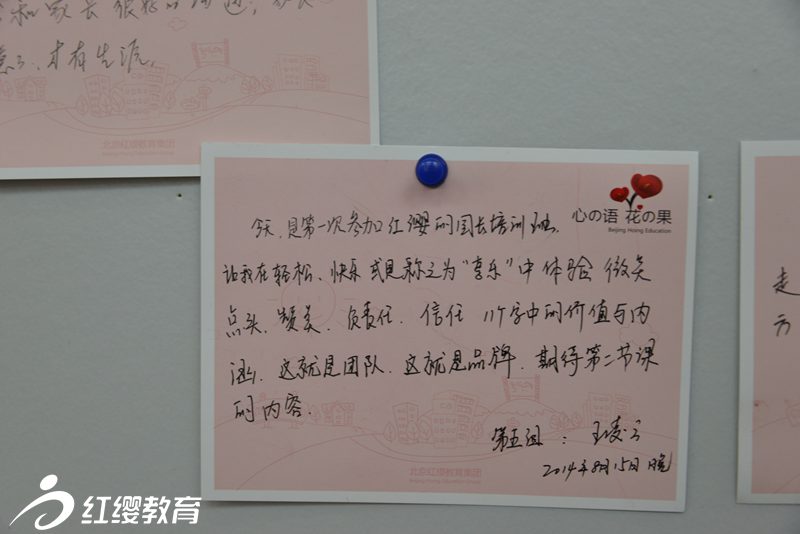 和家长很好的沟通，
才有生源。
北京红缨教育集团
心の语 花の果
Beijing Hoing Education
今天，是第一次参加红缨的园长培训
让我在轻松、快乐或是称之为“享乐”中体验微笑
点头、赞美、负责任、信任 11个字中的价值与内
涵，这就是团队，这就是品牌，期待第二节课
的内容。
第五组：王凌云
2014年8月15日晚
北京红缨教育集团
Beijing Hoing Education Group
走
方
红缨教育